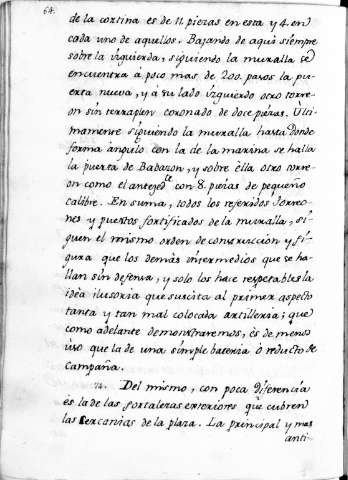 64.
de la cortina es de 11 piezas en esta y 4. en
cada uno de aquellos. Bajando de aqui siempre
sobre la izquierda, siguiendo la muralla se
encuentra á poco mas de 200. pasos la pu-
erta nueva, y á su lado izquierdo otro torre-
on sin terraplen coronado de doce piezas. Ulti-
mamente siguiendo la muralla hasta donde
forma ángulo con la de la marina se halla
la puerta de Babazon, y sobre ella otro torre-
on como el anteced.te con 8. piezas de pequeño
calibre. En suma, todos los referidos torreo-
nes y puestos fortificados de la muralla, si-
guen el mismo orden de construccion y fi-
gura que los demás intermedios que se ha-
llan sin defensa, y solo los hace respetables la
idèa ilusoria que suscita al primer aspecto
tanta y tan mal colocada artilleria; que
como adelante demonstraremos, és de menos
uso que la de una simple bateria ó reducto de
campaña.
74. Del mismo, con poca diferencia
és la de las fortalezas exteriores que cubren
las cercanias de la plaza. La principal y mas
anti-